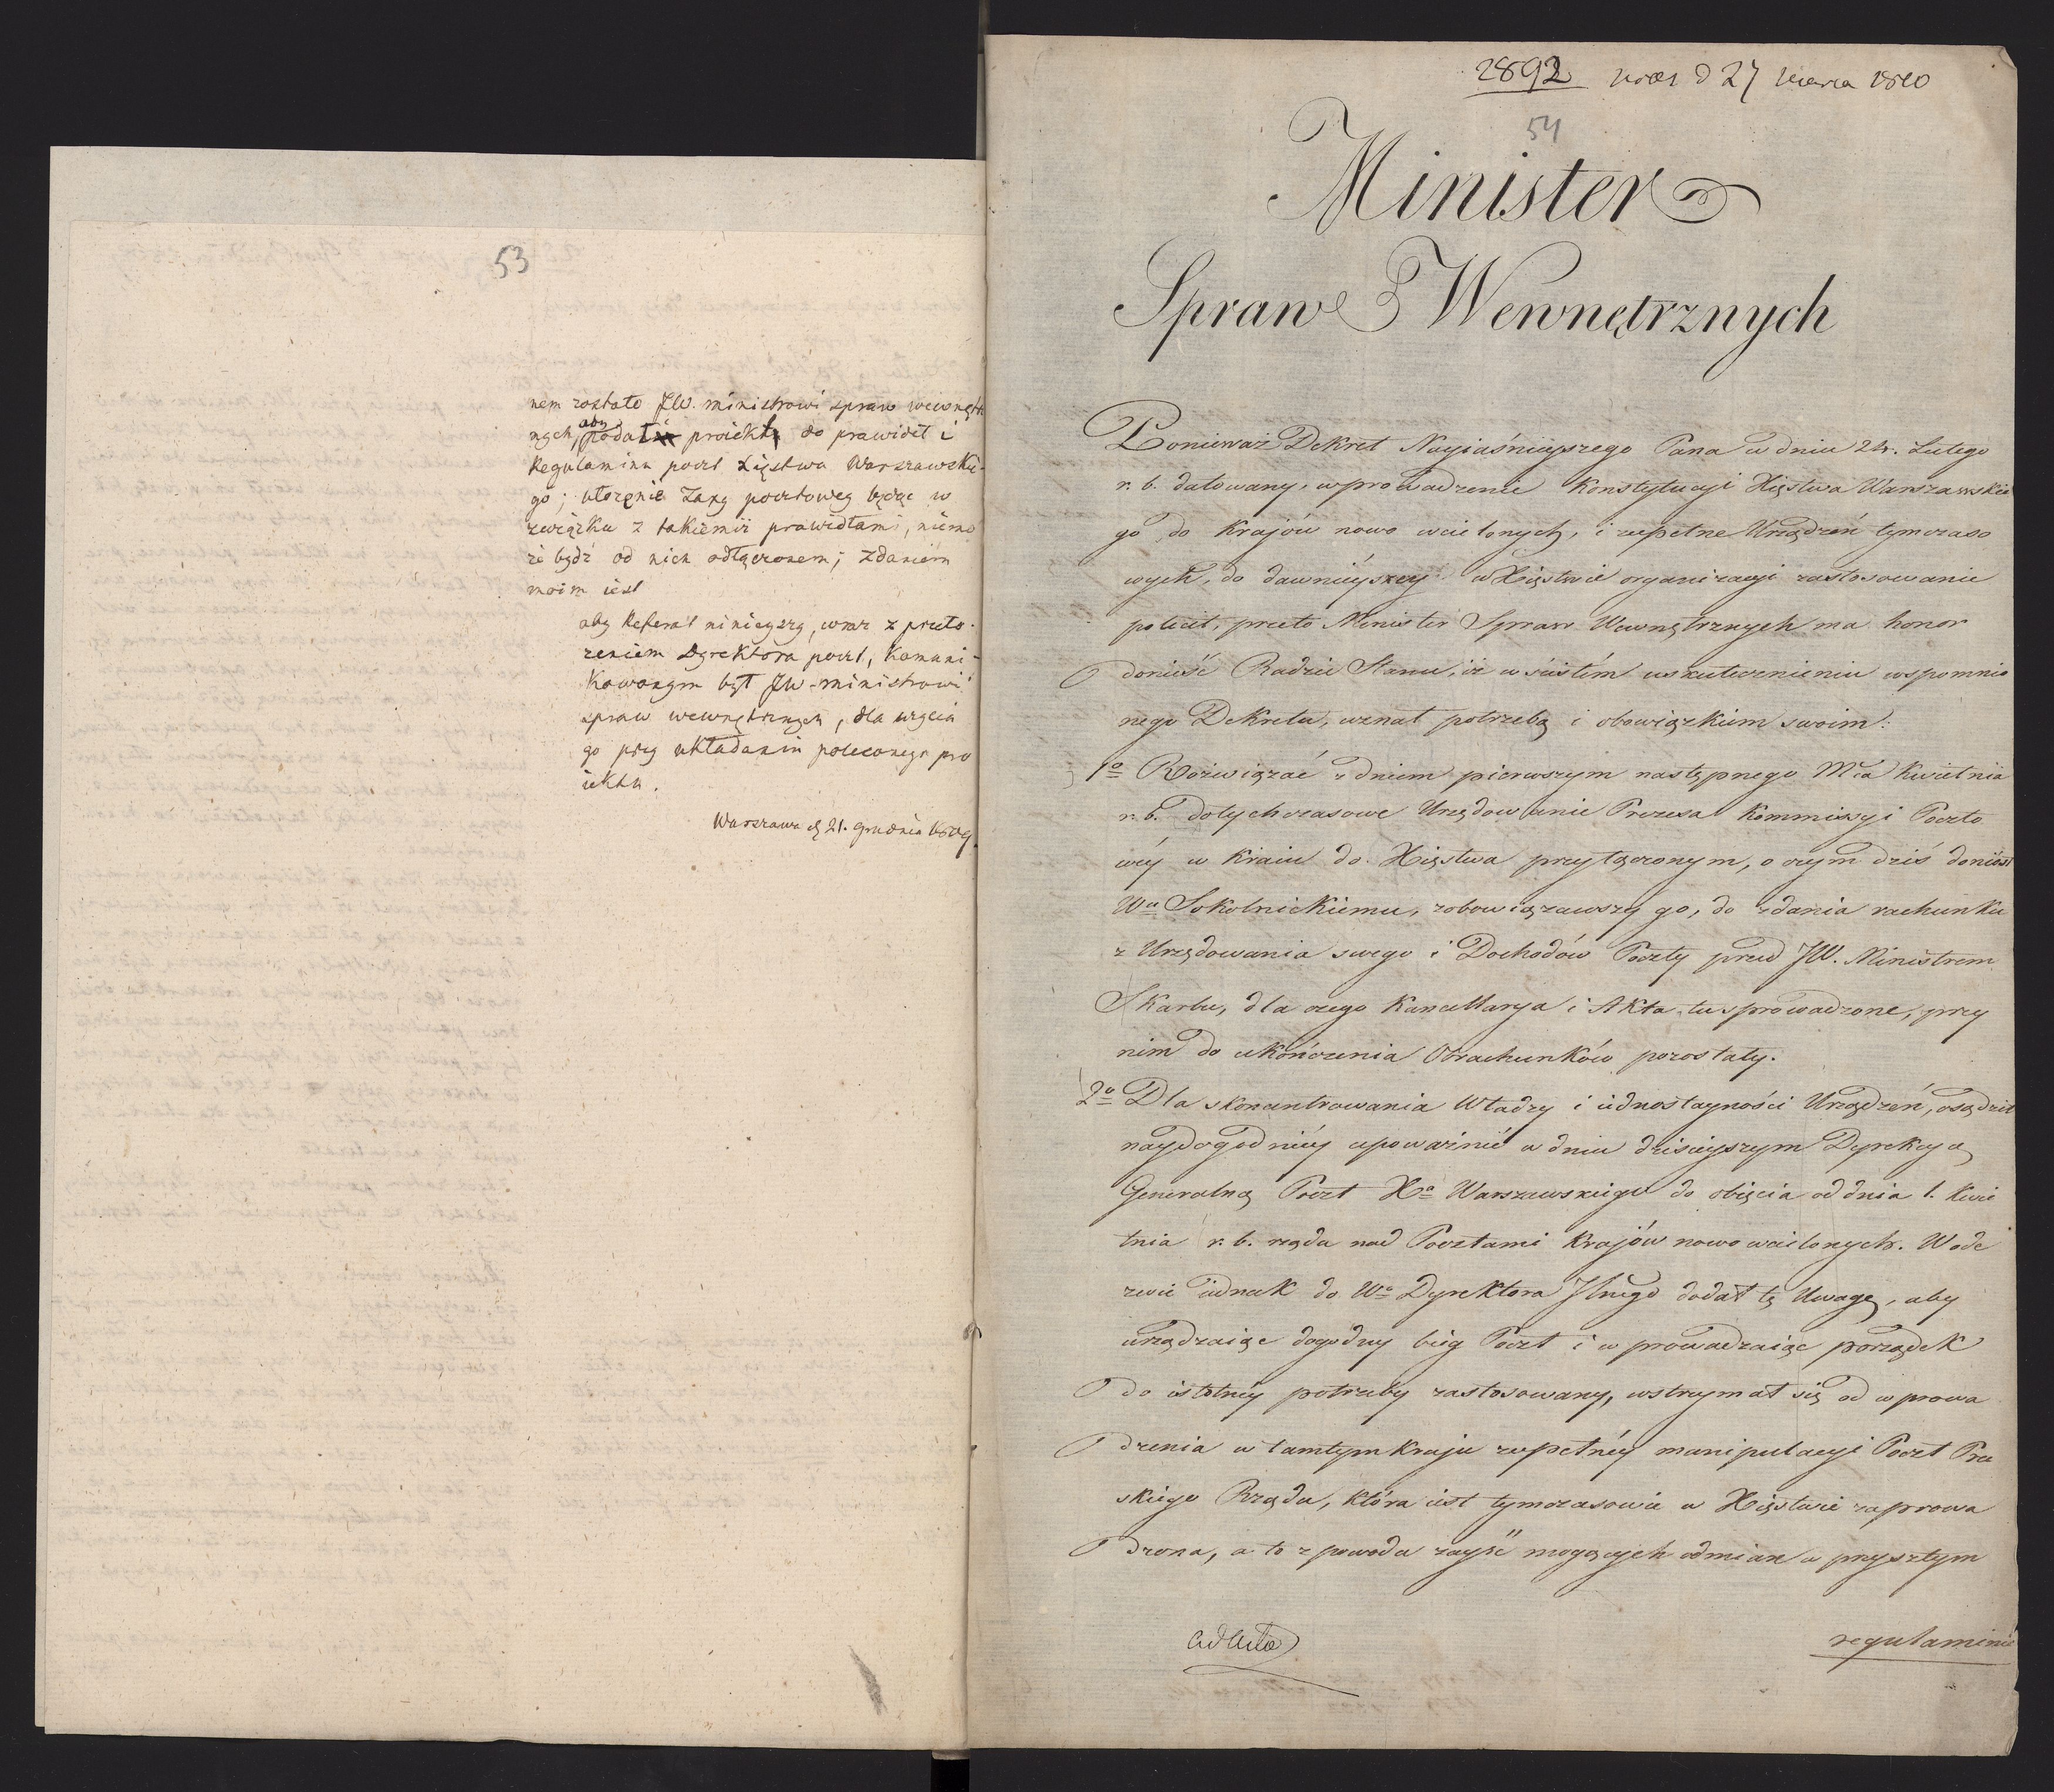 53
nem zostało JW. ministrowi spraw wewnętrz
nych, aby podał proiekt do prawideł i
Regulaminu poczt Xięstwa Warszawskie
go; ułożenie Taxy pocztowey będąc w
związku z takiemiż prawidłami, niemo
że bydź od nich odłączonem; zdaniem
moim iest
aby Referat ninieyszy, wraz z przeło-
żeniem Dyrektora poczt, kommuni-
kowanym był JW-ministrowi
spraw wewnętrznych, dla użycia
go przy układaniu poleconego pro
iektu.
Warszawa d. 21. grudnia 1809.
2892 d 27 marca 1810
54
Minister
Spraw Wewnętrznych
Ponieważ Dekret Nayiaśnieyszego Pana w dniu 24. Lutego
r. b. datowany, wprowadzenie Konstytucyi Xięstwa Warszawskie
go do Krajów nowo wcielonych, i zupełne Urządzeń tymczaso
wych, do dawnieyszey w Xięstwie organizacyi zastosowanie
polecił, przeto Minister Spraw Wewnętrznych ma honor
donieść Radzie Stanu, iż w ścisłém uskutecznieniu wspomnio
nego Dekretu, uznał potrzebą i obowiązkiem swoim:
1o Rozwiązać z dniem pierwszym następnego Mca Kwietnia
r. b. dotychczasowe Urzędowanie Prezesa Kommissyi Poczto
wéy w Kraiu do Xięstwa przyłączonym, o czym dziś doniósł
Wu Sokolnickiemu, zobowiązawszy go, do zdania rachunku
z Urzędowania swego i Dochodów Poczty przed JW. Ministrem
Skarbu, dla czego Kancellarya i Akta tu sprowadzone, przy
nim do ukończenia Obrachunków pozostały.
2o Dla skoncentrowania Władzy i iednostayności Urządzeń, osądził
naydogodniéy upoważnić w dniu dzisieyszym Dyrekcyą
Generalną Poczt Xa Warszawskiego do obięcia od dnia 1. Kwie
tnia r. b. rządu nad Pocztami Krajów nowo wcielonych. Wode
zwie iednak do Wo Dyrektora Jlnego dodał tę Uwagę, aby
urządzaiąc dogodny bieg Poczt i wprowadzaiąc porządek
do istotnéy potrzeby zastosowany, wstrzymał się od wprowa
dzenia w tamtym Kraju zupełnéy manipulacyi Poczt Pru
skiego Rządu, która iest tymczasowie w Xięstwie zaprowa
dzona, a to z powodu zayść mogących odmian w przyszłym
ad Acta
regulaminie